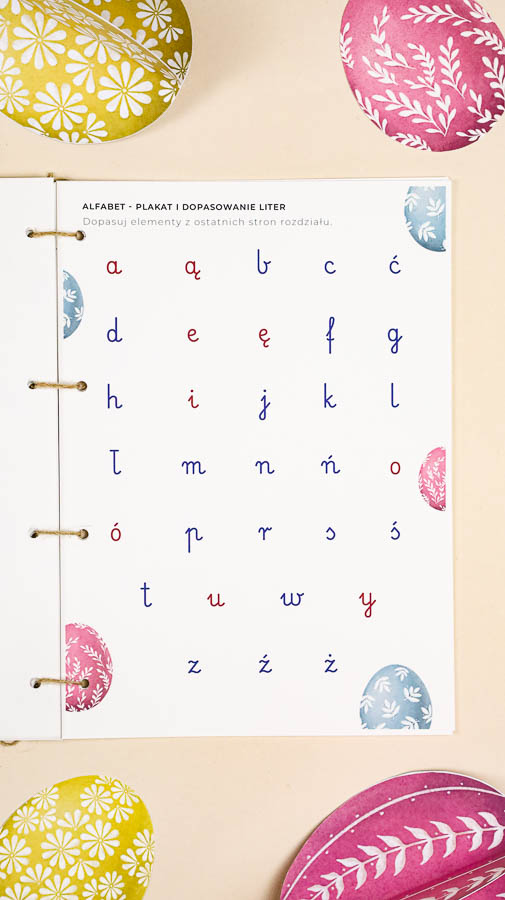 ALFABET - PLAKAT I DOPASOWANIE LITER
Dopasuj elementy z ostatnich stron rozdziału.
a ą b c ć
d e ę f g
h i j k l
ł m n ń o
ó p r s ś
t u w y
z ź ż